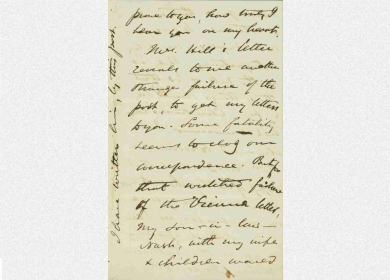 prove to you, how truly I
bear you on my heart.
Mrs. Hill's letter
reveals to me another
strange failure of the
post, to get my letters
to you. Some fatality
seems to clog our
correspondence. But for
that wretched failure
of the Vienna letter,
my son-in-law
Nash, with my wife
& children would
I have written him, by this post.